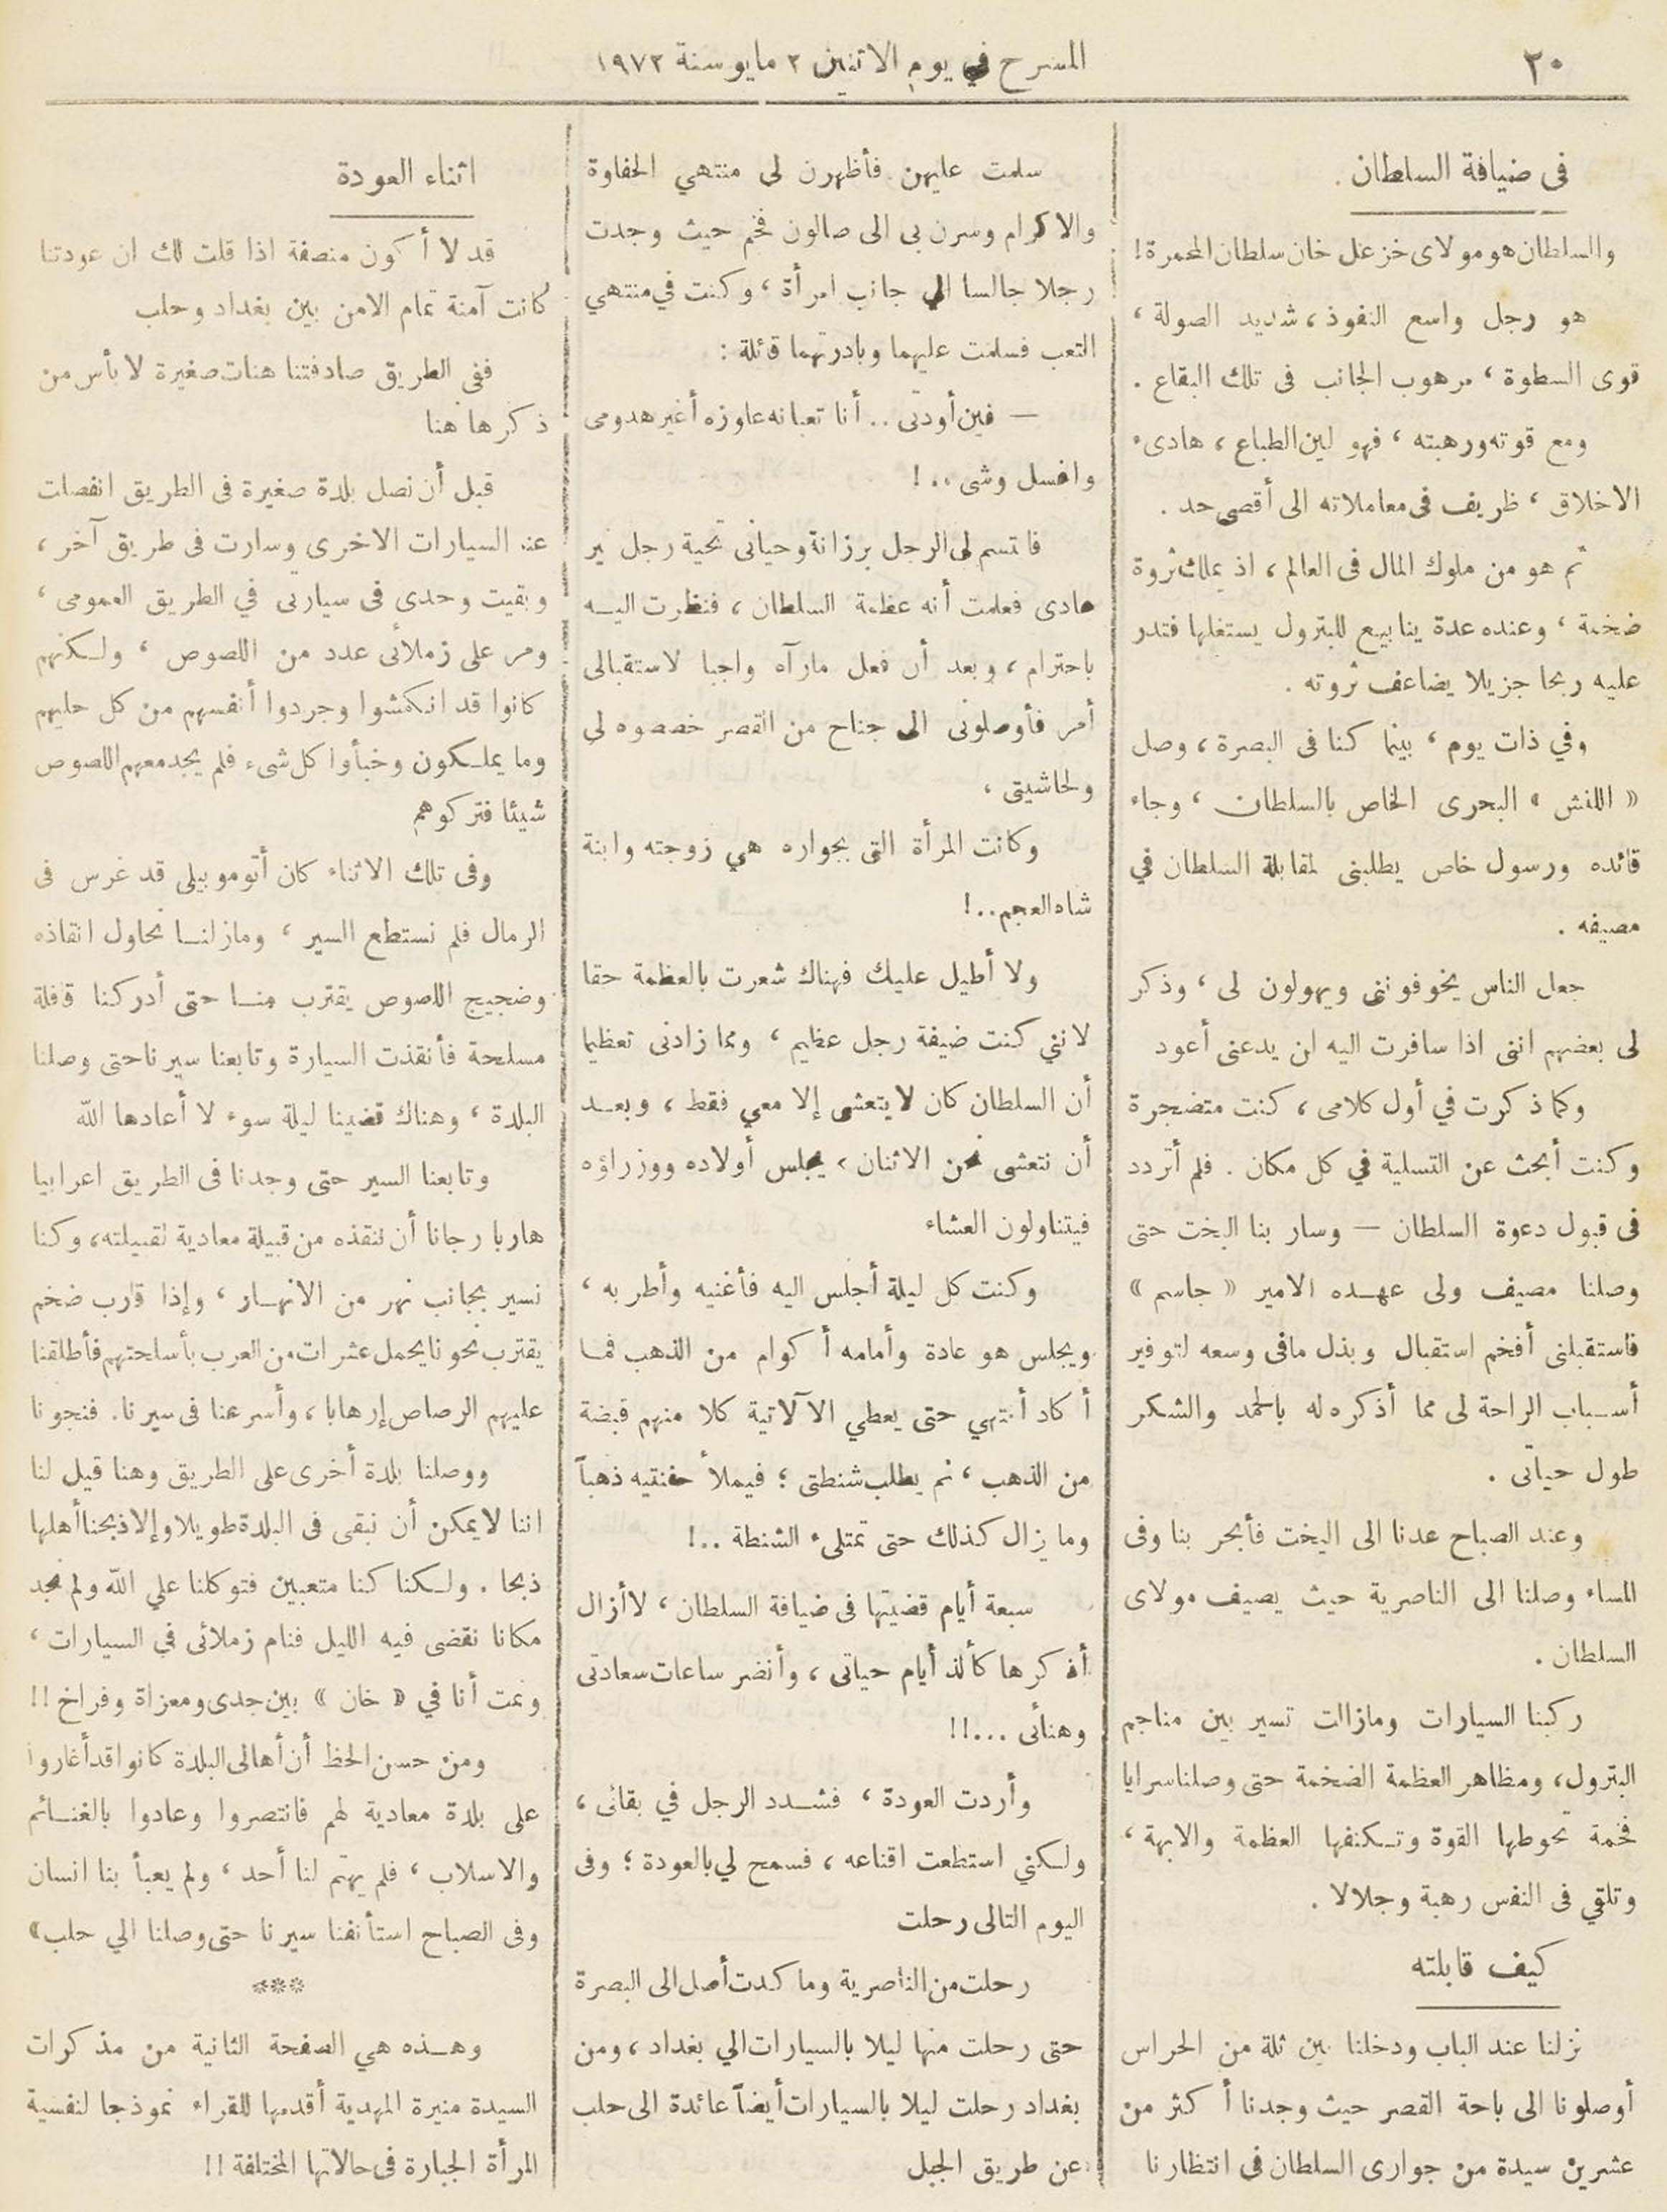 ٢٠
المسرح في يوم الاثنين ٢ مايو سنة ١٩٧٢
فى ضيافة السلطان
والسلطان هو مولاى خزعل خان سلطان المحمرة!
هو رجل واسع النفوذ، شديد الصولة،
قوى السطوة، مرهوب الجانب فى تلك البقاع.
ومع قوته ورهبته، فهو لين الطباع، هادىء
الاخلاق، ظريف فى معاملاته الى أقصى حد.
ثم هو من ملوك المال فى العالم، اذ يملك ثروة
ضخمة، وعنده عدة ينابيع للبترول يستغلها فتدر
عليه ربحا جزيلا يضاعف ثروته.
وفي ذات يوم، بينما كنا فى البصرة، وصل
«اللنش» البحرى الخاص بالسلطان، وجاء
قائده ورسول خاص يطلبنى لمقابلة السلطان في
مصيفه.
جعل الناس يخوفوننى ويهولون لى، وذكر
لى بعضهم اننى اذا سافرت اليه لن يدعنى أعود
وكما ذكرت في أول كلامى، كنت متضجرة
وكنت أبحث عن التسلية في كل مكان. فلم أتردد
فى قبول دعوة السلطان — وسار بنا اليخت حتى
وصلنا مصيف ولى عهده الامير «جاسم»
فاستقبلنى أفخم استقبال وبذل مافى وسعه لتوفير
أسباب الراحة لى مما أذكره له بالحمد والشكر
طول حياتى.
وعند الصباح عدنا الى اليخت فأبحر بنا وفى
المساء وصلنا الى الناصرية حيث يصيف مولاى
السلطان.
ركبنا السيارات ومازالت تسير بين مناجم
البترول، ومظاهر العظمة الضخمة حتى وصلنا سرايا
فخمة تحوطها القوة وتكنفها العظمة والابهة،
وتلقي فى النفس رهبة وجلالا.
كيف قابلته
نزلنا عند الباب ودخلنا بين ثلة من الحراس
أوصلونا الى باحة القصر حيث وجدنا أكثر من
عشرين سيدة من جوارى السلطان في انتظارنا
سلمت عليهن فأظهرن لى منتهي الحفاوة
والاكرام وسرن بى الى صالون فخم حيث وجدت
رجلا جالسا الى جانب امرأة، وكنت في منتهي
التعب فسلمت عليهما وبادرتهما قائلة:
— فين أودتى.. أنا تعبانه عاوزه أغير هدومى
واغسل وشى..!
فابتسم لى الرجل برزانة وحيانى تحية رجل غير
عادى فعلمت أنه عظمة السلطان، فنظرت اليه
باحترام، وبعد أن فعل مارآه واجبا لاستقبالى
أمر فأوصلونى الى جناح من القصر خصصوه لى
ولحاشيتى،
وكانت المرأة التى بجواره هي زوجته وابنة
شاه العجم..!
ولا أطيل عليك فهناك شعرت بالعظمة حقا
لاننى كنت ضيفة رجل عظيم، ومما زادنى تعظيما
أن السلطان كان لايتعشى إلا معي فقط، وبعد
أن نتعشى نحن الاثنان، يجلس أولاده ووزراؤه
فيتناولون العشاء
وكنت كل ليلة أجلس اليه فأغنيه وأطربه،
ويجلس هو عادة وأمامه أكوام من الذهب فما
أكاد أنتهي حتى يعطي الآلاتية كلا منهم قبضة
من الذهب، ثم يطلب شنطتى؛ فيملأ حفنتيه ذهباً
وما يزال كذلك حتى تمتلىء الشنطة..!
سبعة أيام قضيتها فى ضيافة السلطان، لا أزال
أذكرها كألذ أيام حياتى، وأنضر ساعات سعادتى
وهنائى...!!
وأردت العودة، فشدد الرجل في بقائى،
ولكني استطعت اقناعه، فسمح لي بالعودة؛ وفى
اليوم التالى رحلت
رحلت من الناصرية وما كدت أصل الى البصرة
حتى رحلت منها ليلا بالسيارات الي بغداد، ومن
بغداد رحلت ليلا بالسيارات أيضاً عائدة الى حلب
عن طريق الجبل
اثناء العودة
قد لا أكون منصفة اذا قلت لك ان عودتنا
كانت آمنة تمام الامن بين بغداد وحلب
ففى الطريق صادفتنا هنات صغيرة لا بأس من
ذكرها هنا
قبل أن نصل بلدة صغيرة فى الطريق انفصلت
عنا السيارات الاخرى وسارت فى طريق آخر،
وبقيت وحدى فى سيارتى في الطريق العمومى،
ومر على زملائى عدد من اللصوص، ولكنهم
كانوا قد انكمشوا وجردوا أنفسهم من كل حليهم
وما يملكون وخبأوا كل شىء فلم يجد معهم اللصوص
شيئا فتركوهم
وفى تلك الاثناء كان أتوموبيلى قد غرس فى
الرمال فلم نستطع السير، ومازلنا نحاول انقاذه
وضجيج اللصوص يقترب منا حتى أدركنا قافلة
مسلحة فأنقذت السيارة وتابعنا سيرنا حتى وصلنا
البلدة، وهناك قضينا ليلة سوء لا أعادها الله
وتابعنا السير حتى وجدنا فى الطريق اعرابيا
هاربا رجانا أن ننقذه من قبيلة معادية لقبيلته، وكنا
نسير بجانب نهر من الانهار، وإذا قارب ضخم
يقترب نحونا يحمل عشرات من العرب بأسلحتهم فأطلقنا
عليهم الرصاص إرهابا، وأسرعنا فى سيرنا. فنجونا
ووصلنا بلدة أخرى على الطريق وهنا قيل لنا
اننا لايمكن أن نبقى فى البلدة طويلا وإلا ذبحنا أهلها
ذبحا. ولكنا كنا متعبين فتوكلنا علي الله ولم نجد
مكانا نقضى فيه الليل فنام زملائى في السيارات،
ونمت أنا في «خان» بين جدى ومعزاة وفراخ!!
ومن حسن الحظ أن أهالى البلدة كانوا قد أغاروا
على بلدة معادية لهم فانتصروا وعادوا بالغنائم
والاسلاب، فلم يهتم لنا أحد، ولم يعبأ بنا انسان
وفى الصباح استأنفنا سيرنا حتى وصلنا الي حلب»
***
وهذه هي الصفحة الثانية من مذكرات
السيدة منيرة المهدية أقدمها للقراء نموذجا لنفسية
المرأة الجبارة فى حالاتها المختلفة!!